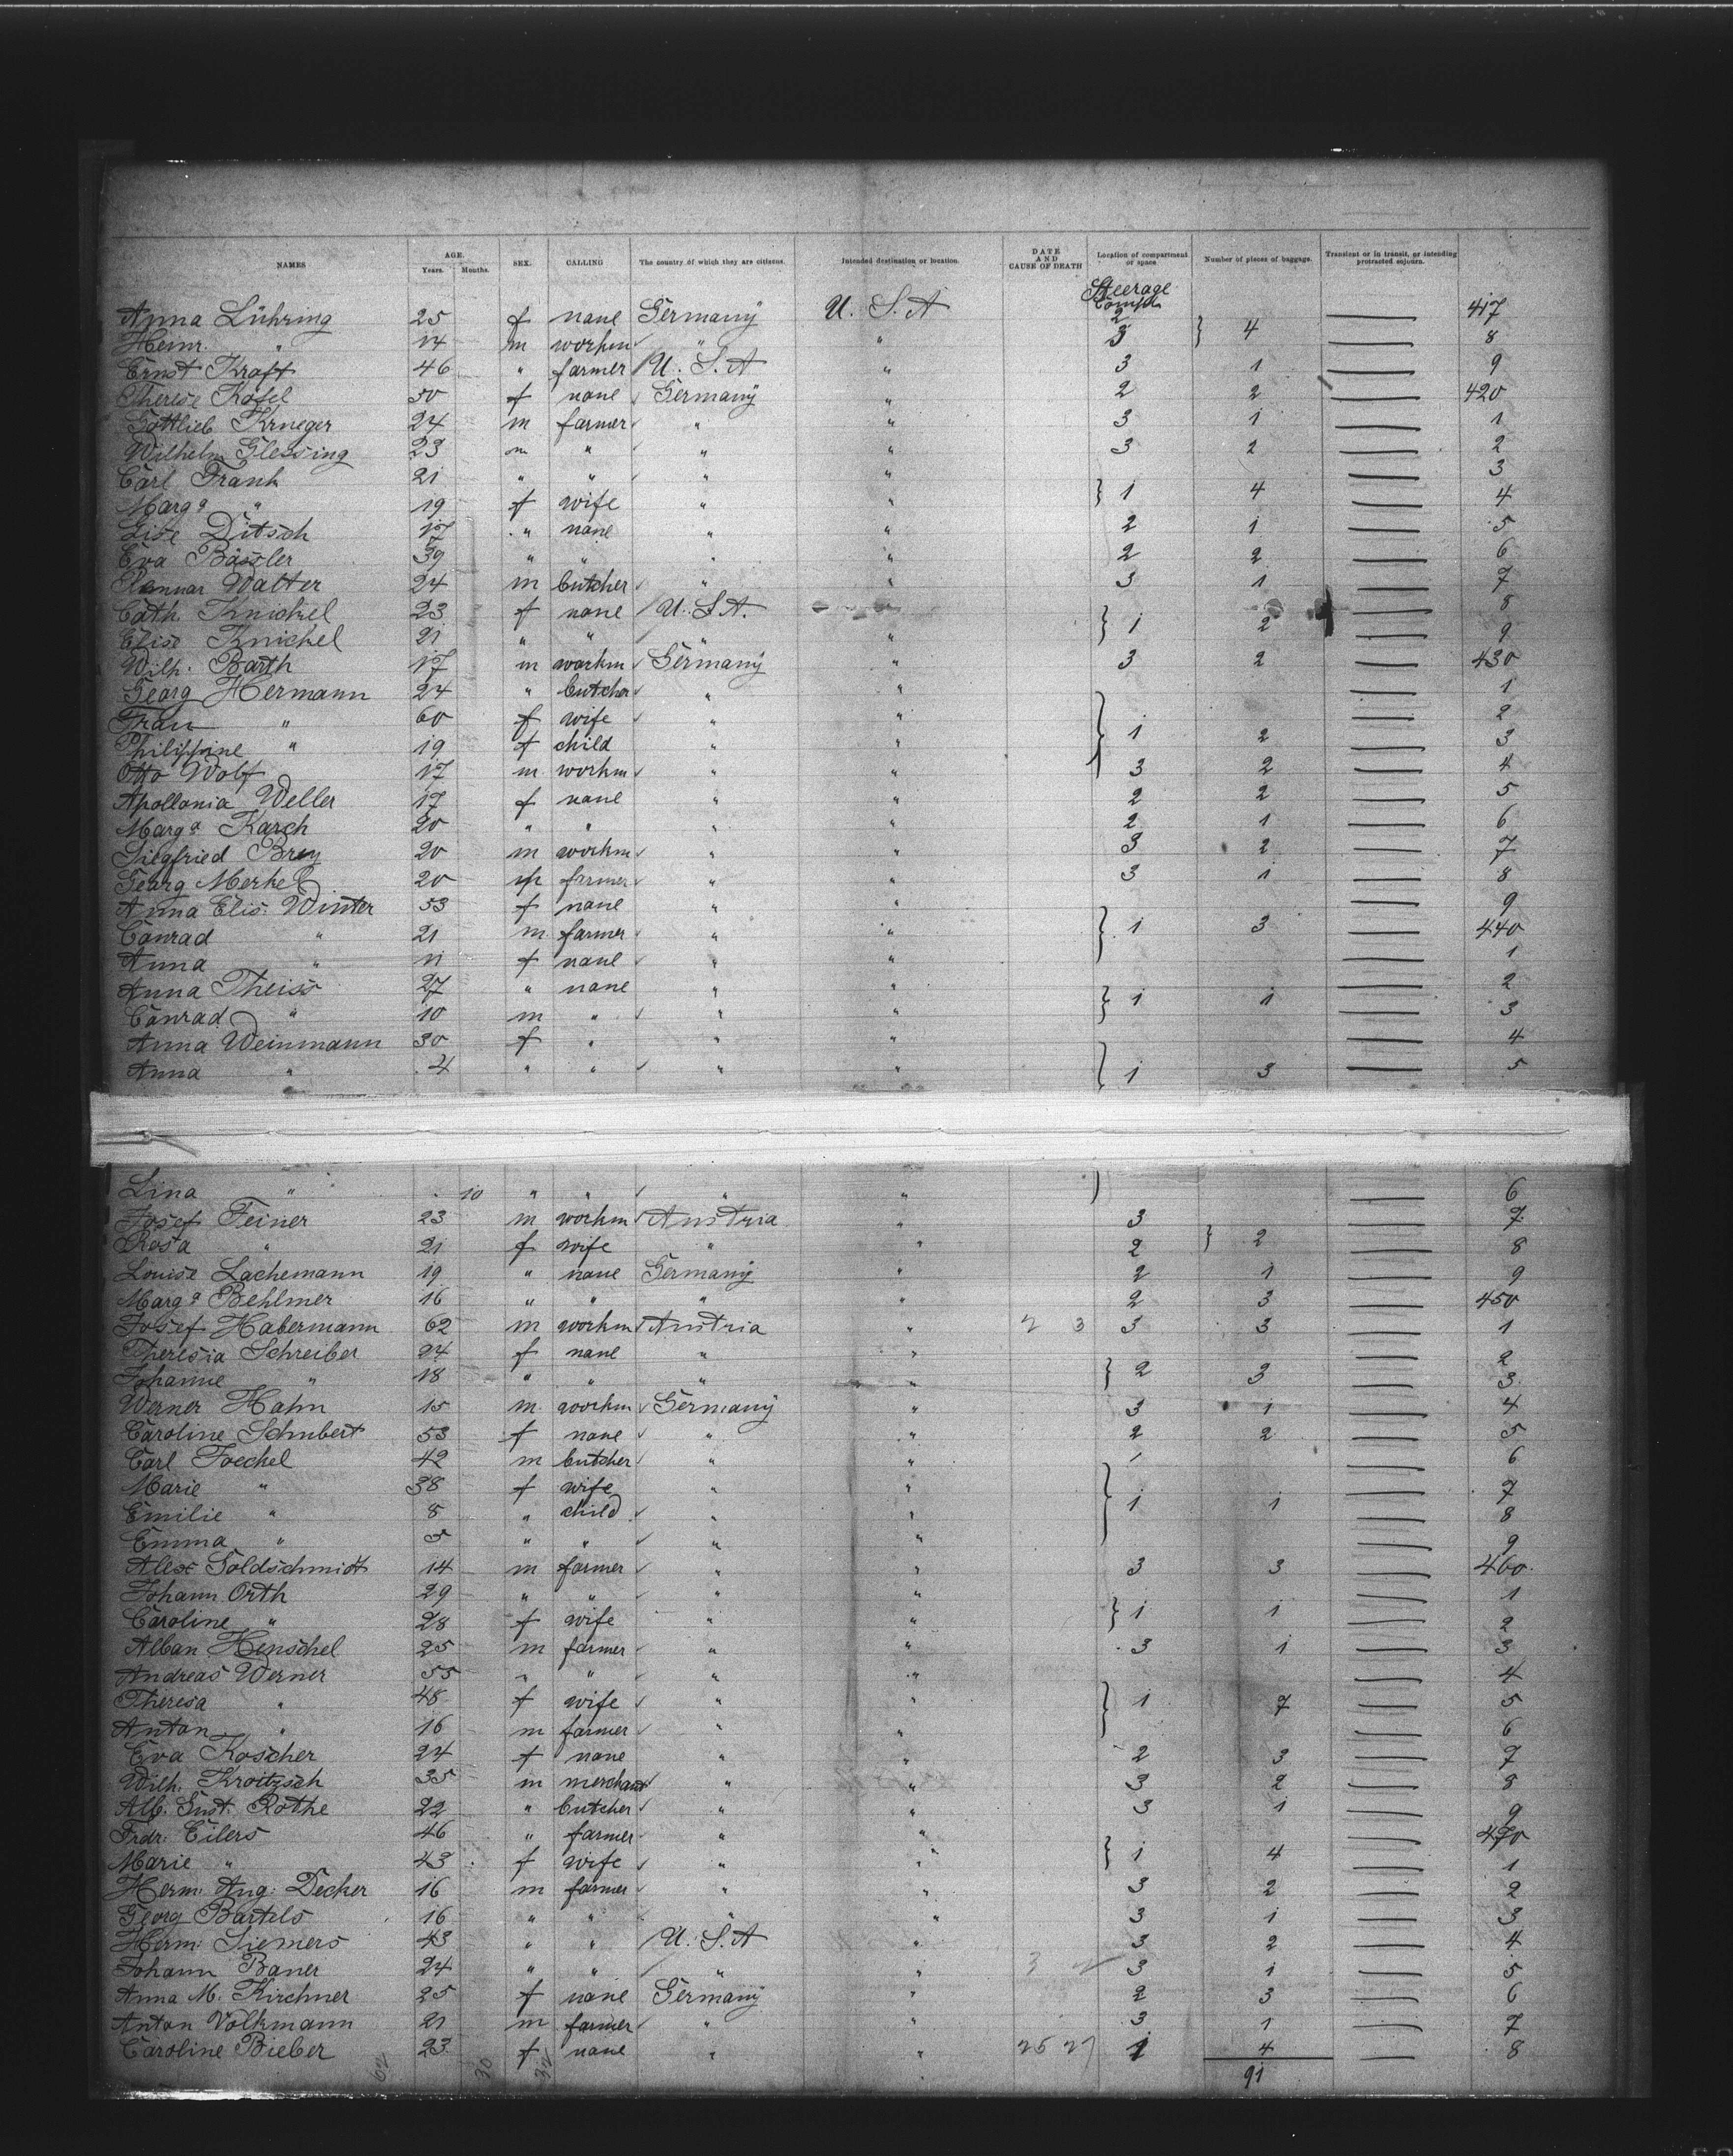 NAMES AGE. Years. Months. SEX. CALLING The country of which they are citizens. Intended destination or location. DATE AND CAUSE OF DEATH Location of compartment or space Number of pieces of baggage. Transient or in transit, or intending protracted sojourn.
Steerage
Compt.
Anna Lühring 25 f none Germany U. S. A 2 417
Heinr. " 14 m workm " " 3 } 4 8
Ernst Kraft 46 " farmer U. S. A " 3 1 9
Therese Kofel 50 f none Germany " 2 2 420
Gottlieb Krueger 24 m farmer " " 3 1 1
Wilhelm Glessing 23 m " " " 3 2 2
Carl Frank 21 " " " " 3
Marga " 19 f wife " " } 1 4 4
Lise Ditsch 17 " none " " 2 1 5
Eva Bässler 39 " " " " 2 2 6
Walter 24 m butcher " " 3 1 7
Cath. Knickel 23 f none U. S. A. 8
Elise Knickel 21 " " " " } 1 2 9
Wilh. Barth 17 m workm Germany " 3 2 430
Georg Hermann 24 " butcher " " 1
Frau " 60 f wife " " 2
Philippine " 19 f child " " } 1 2 3
Otto Wolf 17 m workm " " 3 2 4
Apollonia Weller 17 f none " " 2 2 5
Marga Karch 20 " " " " 2 1 6
Siegfried Brey 20 m workm " " 3 2 7
Georg Merkel 20 m farmer " " 3 1 8
Anna Elis. Winter 53 f none " " 9
Conrad " 21 m farmer " " } 1 3 440
Anna " 11 f none " " 1
Anna Theiss 27 " none " " 2
Conrad " 10 m " " " } 1 1 3
Anna Weinmann 30 f " " " 4
Anna " 4 " " " " } 1 3 5
Lina " 10 " " " " 6
Josef Feiner 23 m workm Austria " 3 7
Rosa " 21 f wife " " 2 } 2 8
Louise Lachemann 19 " none Germany " 2 1 9
Marga Behlmer 16 " " " " 2 3 450
Josef Habermann 62 m workm Austria " 2 3 3 3 1
Theresia Schreiber 24 f none " " 2
Johanne " 18 " " " " } 2 3 3
Werner Hahn 15 m workm Germany " 3 1 4
Caroline Schubert 53 f none " " 2 2 5
Carl Joeckel 42 m butcher " " 6
Marie " 38 f wife " " 7
Emilie " 8 " child " " } 1 1 8
Emma " 5 " " " " 9
Alex Goldschmidt 14 m farmer " " 3 3 460
Johann Orth 29 " " " " 1
Caroline " 28 f wife " " } 1 1 2
Alban Henschel 25 m farmer " " 3 1 3
Andreas Werner 55 " " " " 4
Theresa " 48 f wife " " } 1 7 5
Anton " 16 m farmer " " 6
Eva Koscher 24 f none " " 2 3 7
Wilh. Kroitzsch 35 m merchant " " 3 2 8
Alb. Gust. Rothe 22 " butcher " " 3 1 9
Frdr. Eilers 46 " farmer " " 470
Marie " 43 f wife " " } 1 4 1
Herm. Aug. Decker 16 m farmer " " 3 2 2
Georg Bartels 16 " " " " 3 1 3
Herm. Siemers 43 " " U. S. A " 3 2 4
Johann Baner 24 " " " " 3 1 5
Anna M. Kirchner 25 f none Germany " 2 3 6
Anton Volkmann 21 m farmer " " 3 1 7
Caroline Bieber 23 f none " " 25 27 1 4 8
91